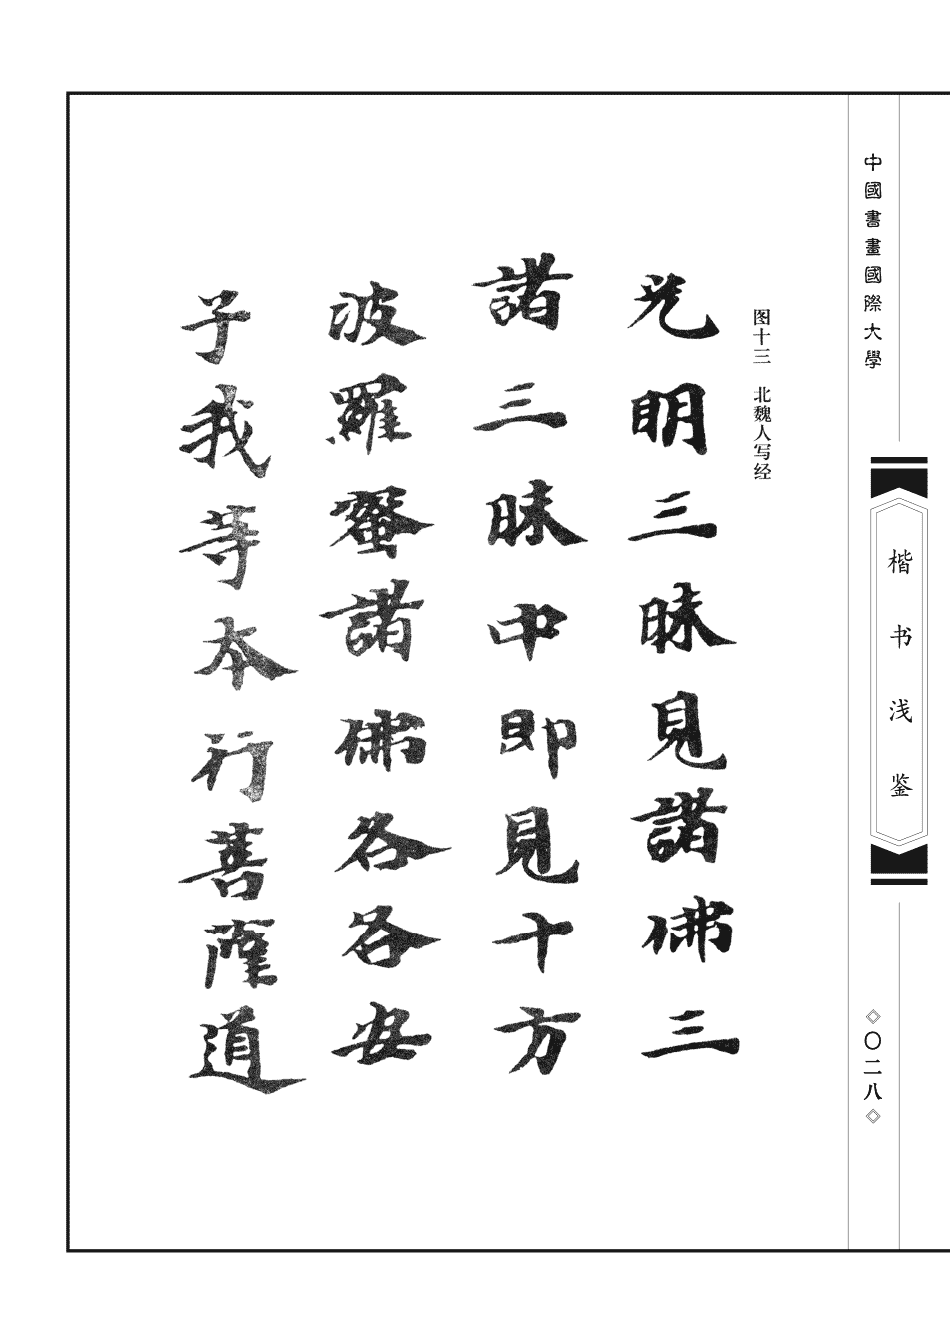 中國書畫國際大學
楷书浅鉴
〇二八
图十三 北魏人写经
光明三昧見諸佛三
諸三昧中即見十方
波羅蜜諸佛各各安
子我等本行菩薩道